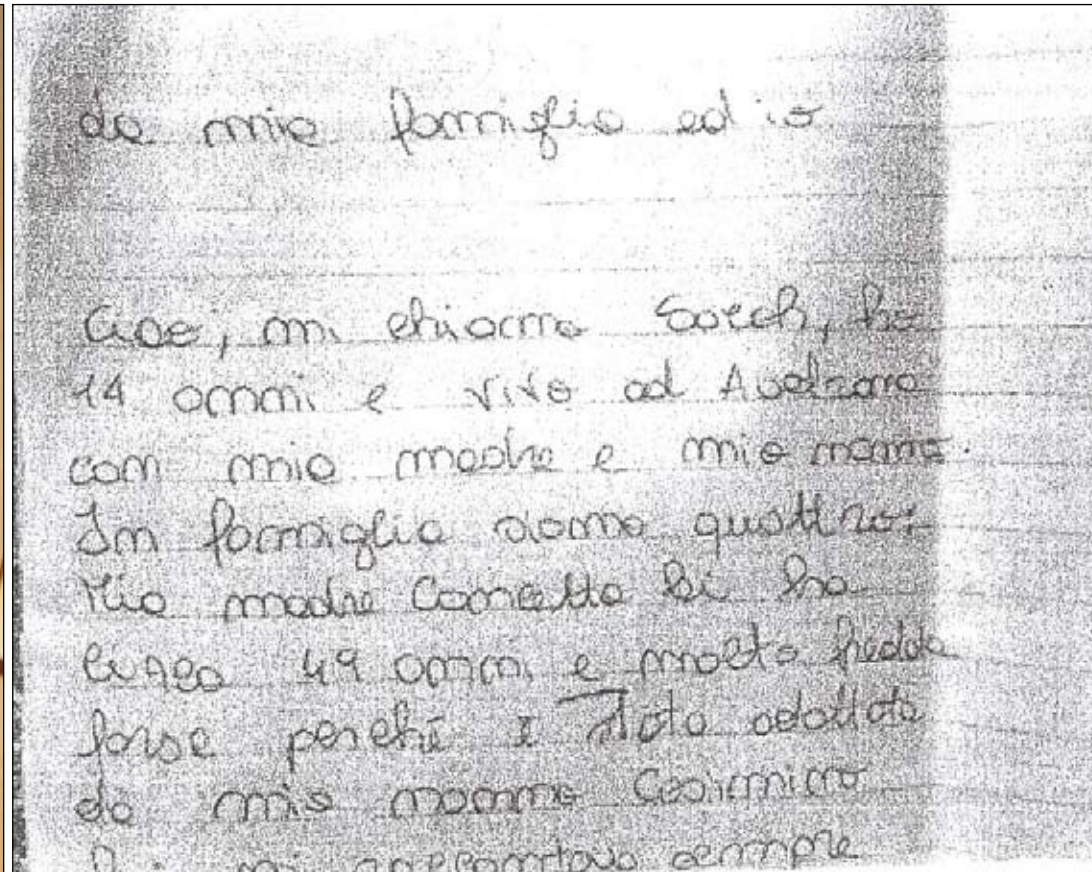 La mia famiglia ed io
Ciao, mi chiamo Sarah, ho
14 anni e vivo ad Avetrana
con mia madre e mio nonno.
In famiglia siamo quattro:
Mia madre Concetta
49 anni, e molto fredda
forse perché è stata adottata
da mio nonno Cosimino
mi raccontava sempre